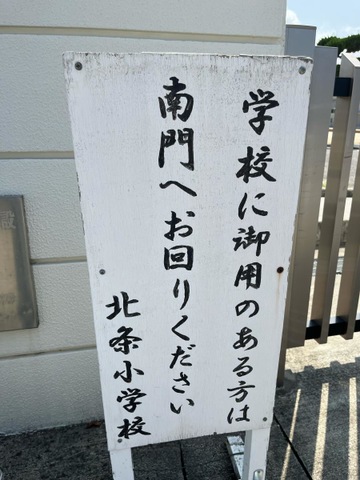 学校に御用のある方は
南門へお回りください
北条小学校